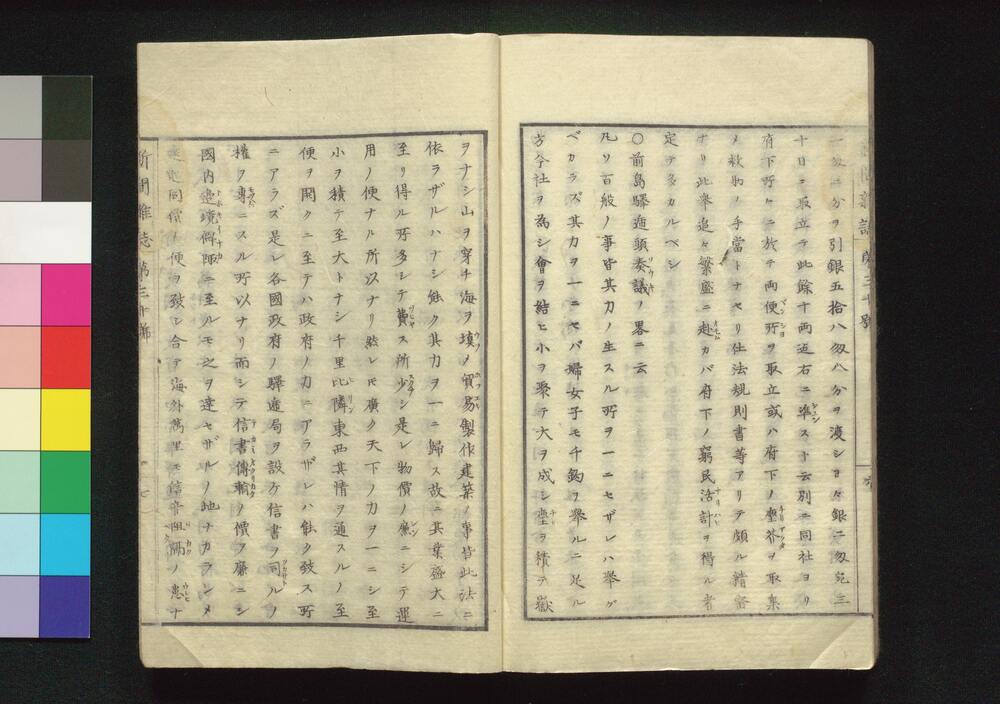 一匁二分ヲ引銀五拾八匁八分ヲ渡シ日々銀二匁宛三
十日ニ取立テ此餘十両迠右ニ準スト云別ニ同社ヨリ
有下所々ニ於テ両便所ヲ取立或ハ府下ノ塵芥ヲ取集
メ救助ノ手當トナセリ仕法規則書等アリテ頗ル精密
ナリ此擧追々繁盛ニ赴カバ府下ノ窮民活計ヲ得ル者
定テ多カルベシ
〇前島驛逓頭奏議ノ畧ニ云
凡ソ百般ノ事皆其力ノ生スル所ヲ一ニセザレハ擧グ
ベカラズ其力ヲ一ニセバ婦女子モ千鈞ヲ擧ルニ足ル
方今社ヲ為シ會ヲ結ヒ小ヲ聚テ大ヲ成シ塵ヲ積テ嶽
ヲナシ山ヲ穿チ海ヲ填メ貿易製作建築ノ事皆此法ニ
依ラザルハナシ能ク其力ヲ一ニ歸ス故ニ其業盛大ニ
至リ得ル所多シテ費ス所少シ是レ物價ノ廉ニシテ運
用ノ便ナル所以ナリ然レ𪜈廣ク天下ノ力ヲ一ニシ至
小ヲ積テ至大トナシ千里比隣東西其情ヲ通スルノ至
便ヲ開クニ至テハ政府ノ力ニアラザレハ能ク致ス所
ニアラズ是レ各國政府ノ驛逓局ヲ設ケ信書ヲ司ルノ
權ヲ專ニスル所以ナリ而シテ信書傳輸ノ價ヲ廉ニシ
國内邊境僻陬ニ至ルモ之ヲ達セザルノ地ナカランメ
同價ノ便ヲ致シ合テ海外萬里モ信音阻隔ノ患ナ
新聞雜志 第三十號